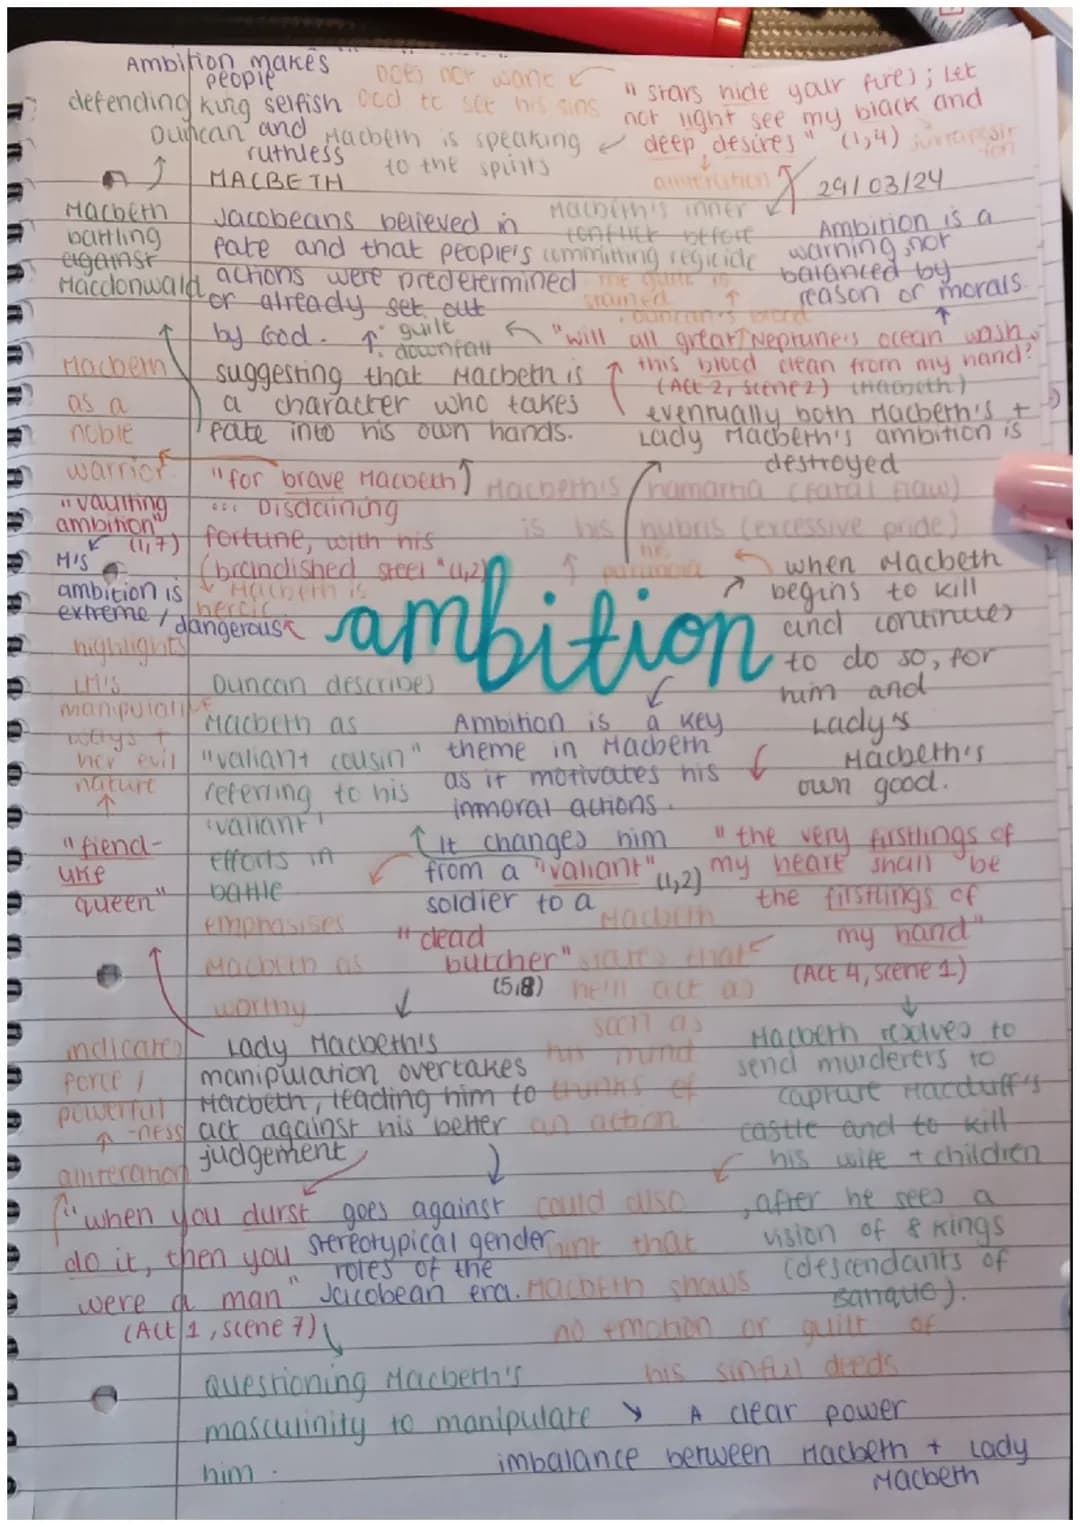 Ambition makes people
selfish
and
ruthless
defending king
Duncan
Does not want
God to see his sins
Macbeth is speaking
to the spirits
"stars hide your fires; Let
not light see my black and
deep desires" (1,4)
alliteration
MACBETH
29/03/24
Macbeth
battling
against
Macdonwald
Jacobeans believed in
fate and that people's
actions were predetermined
or already set out
by God.
suggesting that Macbeth is
a character who takes
fate into his own hands.
Macbeth's inner
conflict before
committing regicide
the guilt is
stained
Duncan's blood
Ambition is a
warning, not
balanced by
reason or morals.
: guilt
: downfall
"will all great Neptune's ocean wash
this blood clean from my hand?
(Act 2, scene 2) (Macbeth)
eventually both Macbeth's +
Lady Macbeth's ambition is
destroyed
Macbeth
as a
noble
warrior
"for brave Macbeth
... Disdaining
fortune, with his
brandished steel" (1,2)
Macbeth is
heroic
Macbeth's hamartia (fatal flaw)
is his hubris (excessive pride)
paranoia
"vaulting
ambition"
(1,7)
His
ambition is
extreme / dangerous
when Macbeth
begins to kill
and continues
to do so, for
him and
Lady's
Macbeth's
own good.
ambition
highlights
LM's
manipulative
ways +
her evil
nature
"fiend-
like
queen"
Duncan describes
Macbeth as
"valiant cousin"
referring to his
'valiant'
efforts in
battle
emphasises
Macbeth as
worthy
Ambition is a key
theme in Macbeth
as it motivates his
immoral actions.
It changes him
from a "valiant" (1,2)
soldier to a
"dead
butcher"
(5,8)
"the very firstlings of
my heart shall be
the firstlings of
my hand"
(Act 4, scene 1)
Macbeth
states that
he'll act as
soon as
his mind
thinks of
an action
could also
hint that
Macbeth shows
no emotion or guilt of
his sinful deeds
Macbeth resolves to
send murderers to
capture Macduff's
castle and to kill
his wife + children
, after he sees a
vision of 8 kings
(descendants of
Banquo).
Lady Macbeth's
manipulation overtakes
Macbeth, leading him to
act against his better
judgement
indicates
force /
powerful
-ness
alliteration
"when you durst
do it, then you
were a man"
(Act 1, scene 7)
goes against
stereotypical gender
roles of the
Jacobean era.
questioning Macbeth's
masculinity to manipulate
him.
A clear power
imbalance between Macbeth + Lady
Macbeth